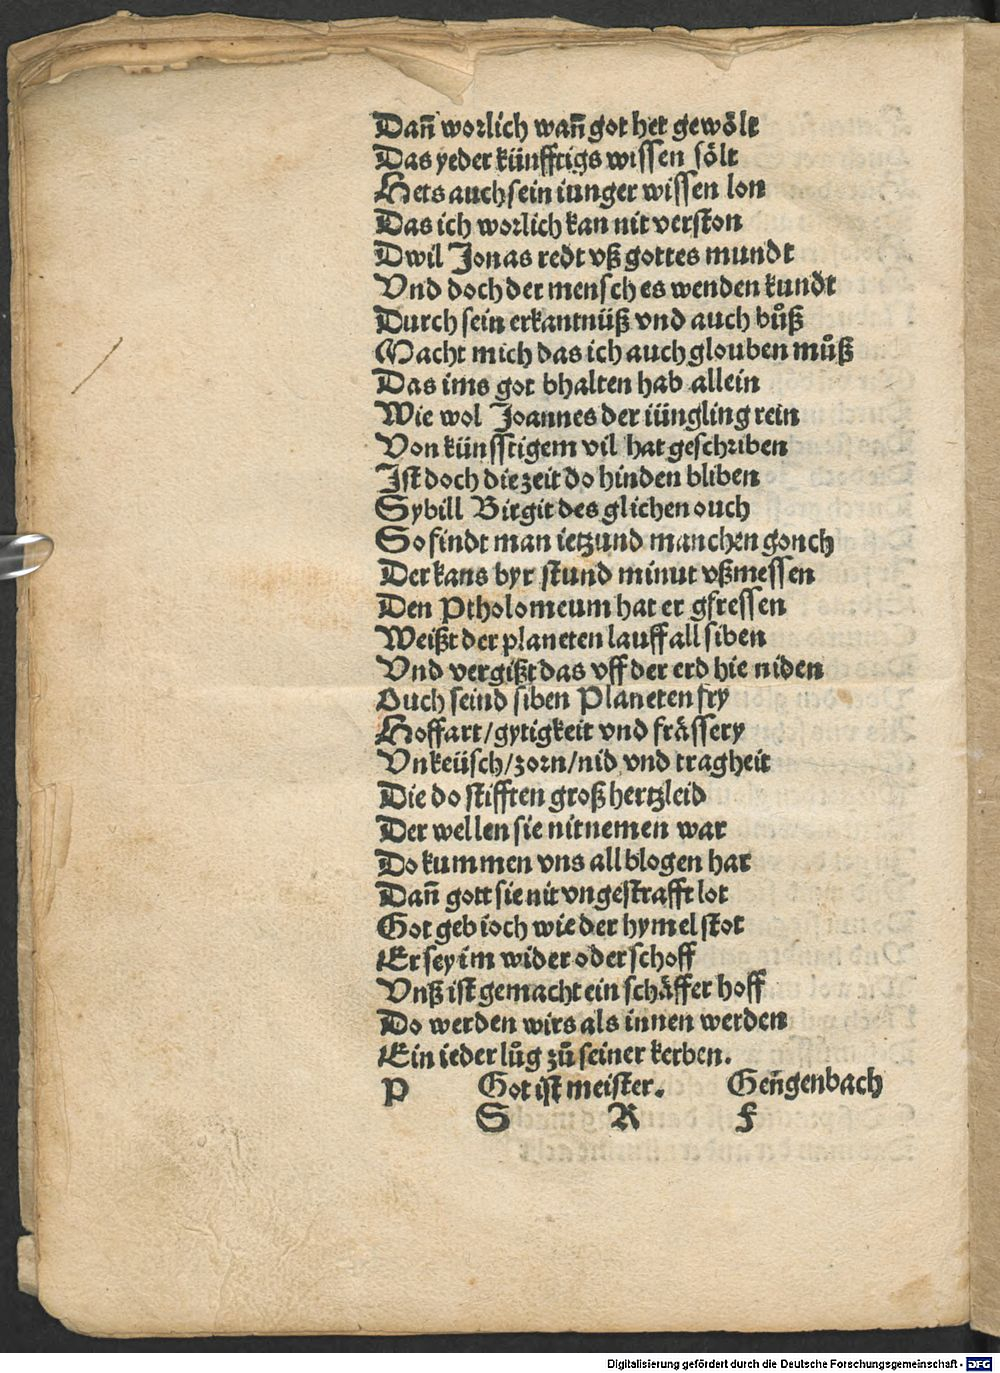 Dañ worlich wañ got het gewölt
Das yeder künfftigs wissen sölt
Hets auch sein iunger wissen lon
Das ich worlich kan nit verston
Dwil Jonas redt vß gottes mundt
Vnd doch der mensch es wenden kundt
Durch sein erkantnüß vnd auch bůß
Macht mich das ich auch glouben můß
Das ims got bhalten hab allein
Wie wol Joannes der iüngling rein
Von künfftigem vil hat geschriben
Ist doch die zeit do hinden bliben
Sybill Birgit des glichen ouch
So findt man ietzund manchen gouch
Der kans byr stund minut vßmessen
Den Ptholomeum hat er gfressen
Weißt der planeten lauff all siben
Vnd vergißt das vff der erd hie niden
Ouch seind siben Planeten fry
Hoffart/gytigkeit vnd frässery
Vnkeüsch/zorn/nid vnd tragheit
Die do stifften groß hertzleid
Der wellen sie nit nemen war
Do kummen vns all blogen har
Dañ gott sie nit vngestrafft lot
Got geb ioch wie der hymel stot
Er sey im wider oder schoff
Vnß ist gemacht ein schäffer hoff
Do werden wirs als innen werden
Ein ieder lůg zů seiner kerben.
P Got ist meister. Geñgenbach
S R F
Digitalisierung gefördert durch die Deutsche Forschungsgemeinschaft - DFG